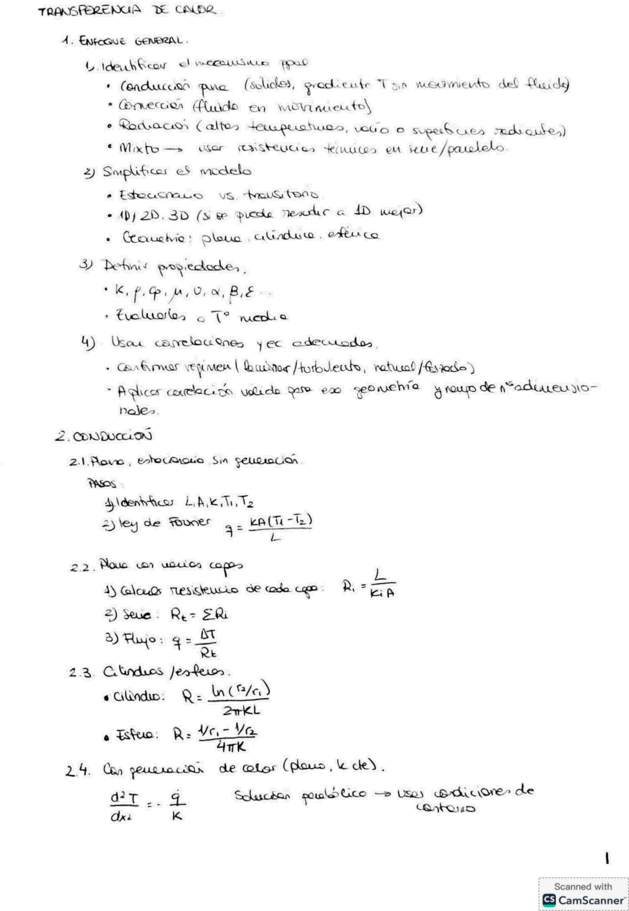 TRANSFERENCIA DE CALOR.
1. ENFOQUE GENERAL.
1) Identificar el mecanismo ppal
• Conducción pura (solidos, gradiente T sin movimiento del fluido)
• Convección (fluido en movimiento)
• Radiación (altas temperaturas, vacío o superficies radiantes)
• Mixto → usar resistencias térmicas en serie/paralelo.
2) Simplificar el modelo
• Estacionario vs. transitorio
• 1D, 2D, 3D (si se puede reducir a 1D mejor)
• Geometría: plana, cilíndrica, esférica
3) Definir propiedades.
• K, ρ, Cp, μ, υ, α, β, ε...
• Evaluarlas a T° media
4) Usar correlaciones y ec adecuadas.
• Confirmar regimen (laminar/turbulento, natural/forzado)
• Aplicar correlación valida para esa geometría y rango de nºs adimensio-
nales.
2. CONDUCCIÓN
2.1. Plano, estacionario sin generación.
PASOS:
1) Identificar L, A, K, T₁, T₂
2) ley de Fourier q = KA(T₁ - T₂) / L
2.2. Plano con varias capas
1) Calcular resistencia de cada capa: Rᵢ = L / KᵢA
2) Serie: Rt = ΣRi
3) Flujo: q = ΔT / Rt
2.3. Cilindros/esferas.
• Cilindro: R = ln(r₂/r₁) / 2πKL
• Esfera: R = 1/r₁ - 1/r₂ / 4πK
2.4. Con generación de calor (plano, k cte).
d²T / dx² = - q̇ / K Solución parabólica → usar condiciones de
contorno
1
Scanned with
CS CamScanner